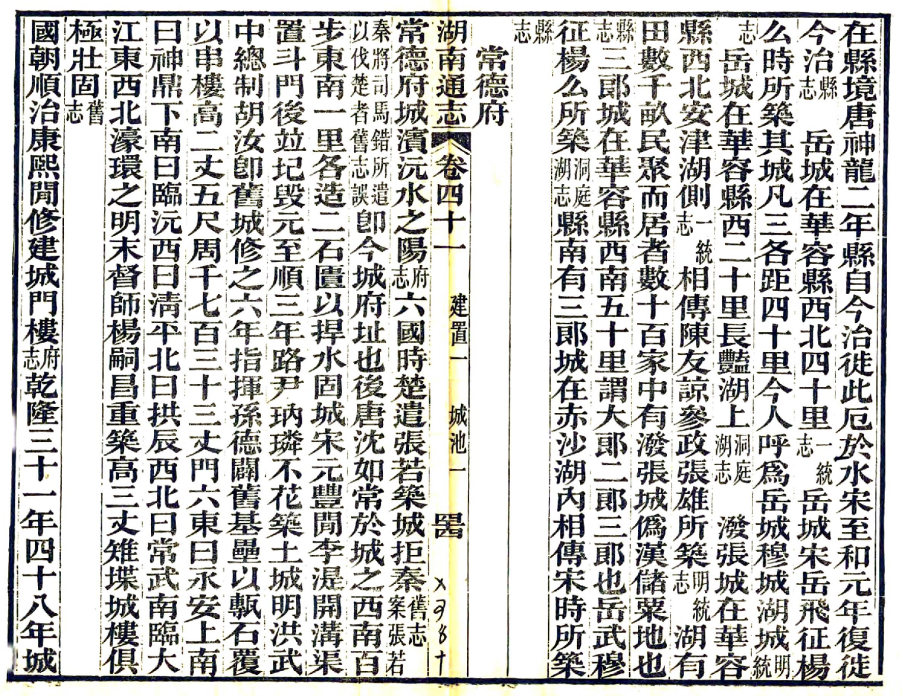 在縣境唐神龍二年縣自今治徙此厄於水宋至和元年復徙
今治縣志　岳城在華容縣西北四十里一統志岳城宋岳飛征楊
么時所築其城凡三各距四十里今人呼爲岳城穆城湖城明統
志　岳城在華容縣西二十里長豔湖上洞庭湖志　潑張城在華容
縣西北安津湖側一統志相傳陳友諒參政張雄所築明統志湖有
田數千畝民聚而居者數十百家中有潑張城僞漢儲粟地也
縣志　三郎城在華容縣西南五十里謂大郎二郎三郎也岳武穆
征楊么所築洞庭湖志縣南有三郎城在赤沙湖內相傳宋時所築
縣志
常德府
湖南通志　卷四十一　建置一　城池一
常德府城濱沅水之陽府志六國時楚遣張若築城拒秦舊志案張若
秦將司馬錯所遣以伐楚者舊志誤卽今城府址也後唐沈如常於城之西南百
步東南一里各造二石匱以捍水固城宋元豐閒李湜開溝渠
置斗門後竝圮毀元至順三年路尹㻇璘不花築土城明洪武
中總制胡汝卽舊城修之六年指揮孫德闢舊基壘以甎石覆
以串樓高二丈五尺周千七百三十三丈門六東曰永安上南
曰神鼎下南曰臨沅西曰淸平北曰拱辰西北曰常武南臨大
江東西北濠環之明末督師楊嗣昌重築高三丈雉堞城樓俱
極壯固舊志
國朝順治康熙閒修建城門樓府志乾隆三十一年四十八年城